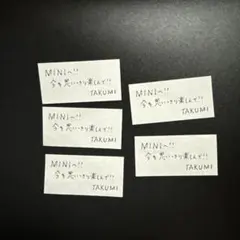 MINIへ!!
今を思いっきり楽しんで!!
TAKUMI
MINIへ!!
今を思いっきり楽しんで!!
TAKUMI
MINIへ!!
今を思いっきり楽しんで!!
TAKUMI
MINIへ!!
今を思いっきり楽しんで!!
TAKUMI
MINIへ!!
今を思いっきり楽しんで!!
TAKUMI